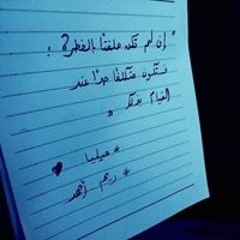 " إن لم تكن ملفتًا بالفطرة ؛
فستكون متكلفًا جدًا عند
القيام بذلك "
* ميليا
* ريم أحمد